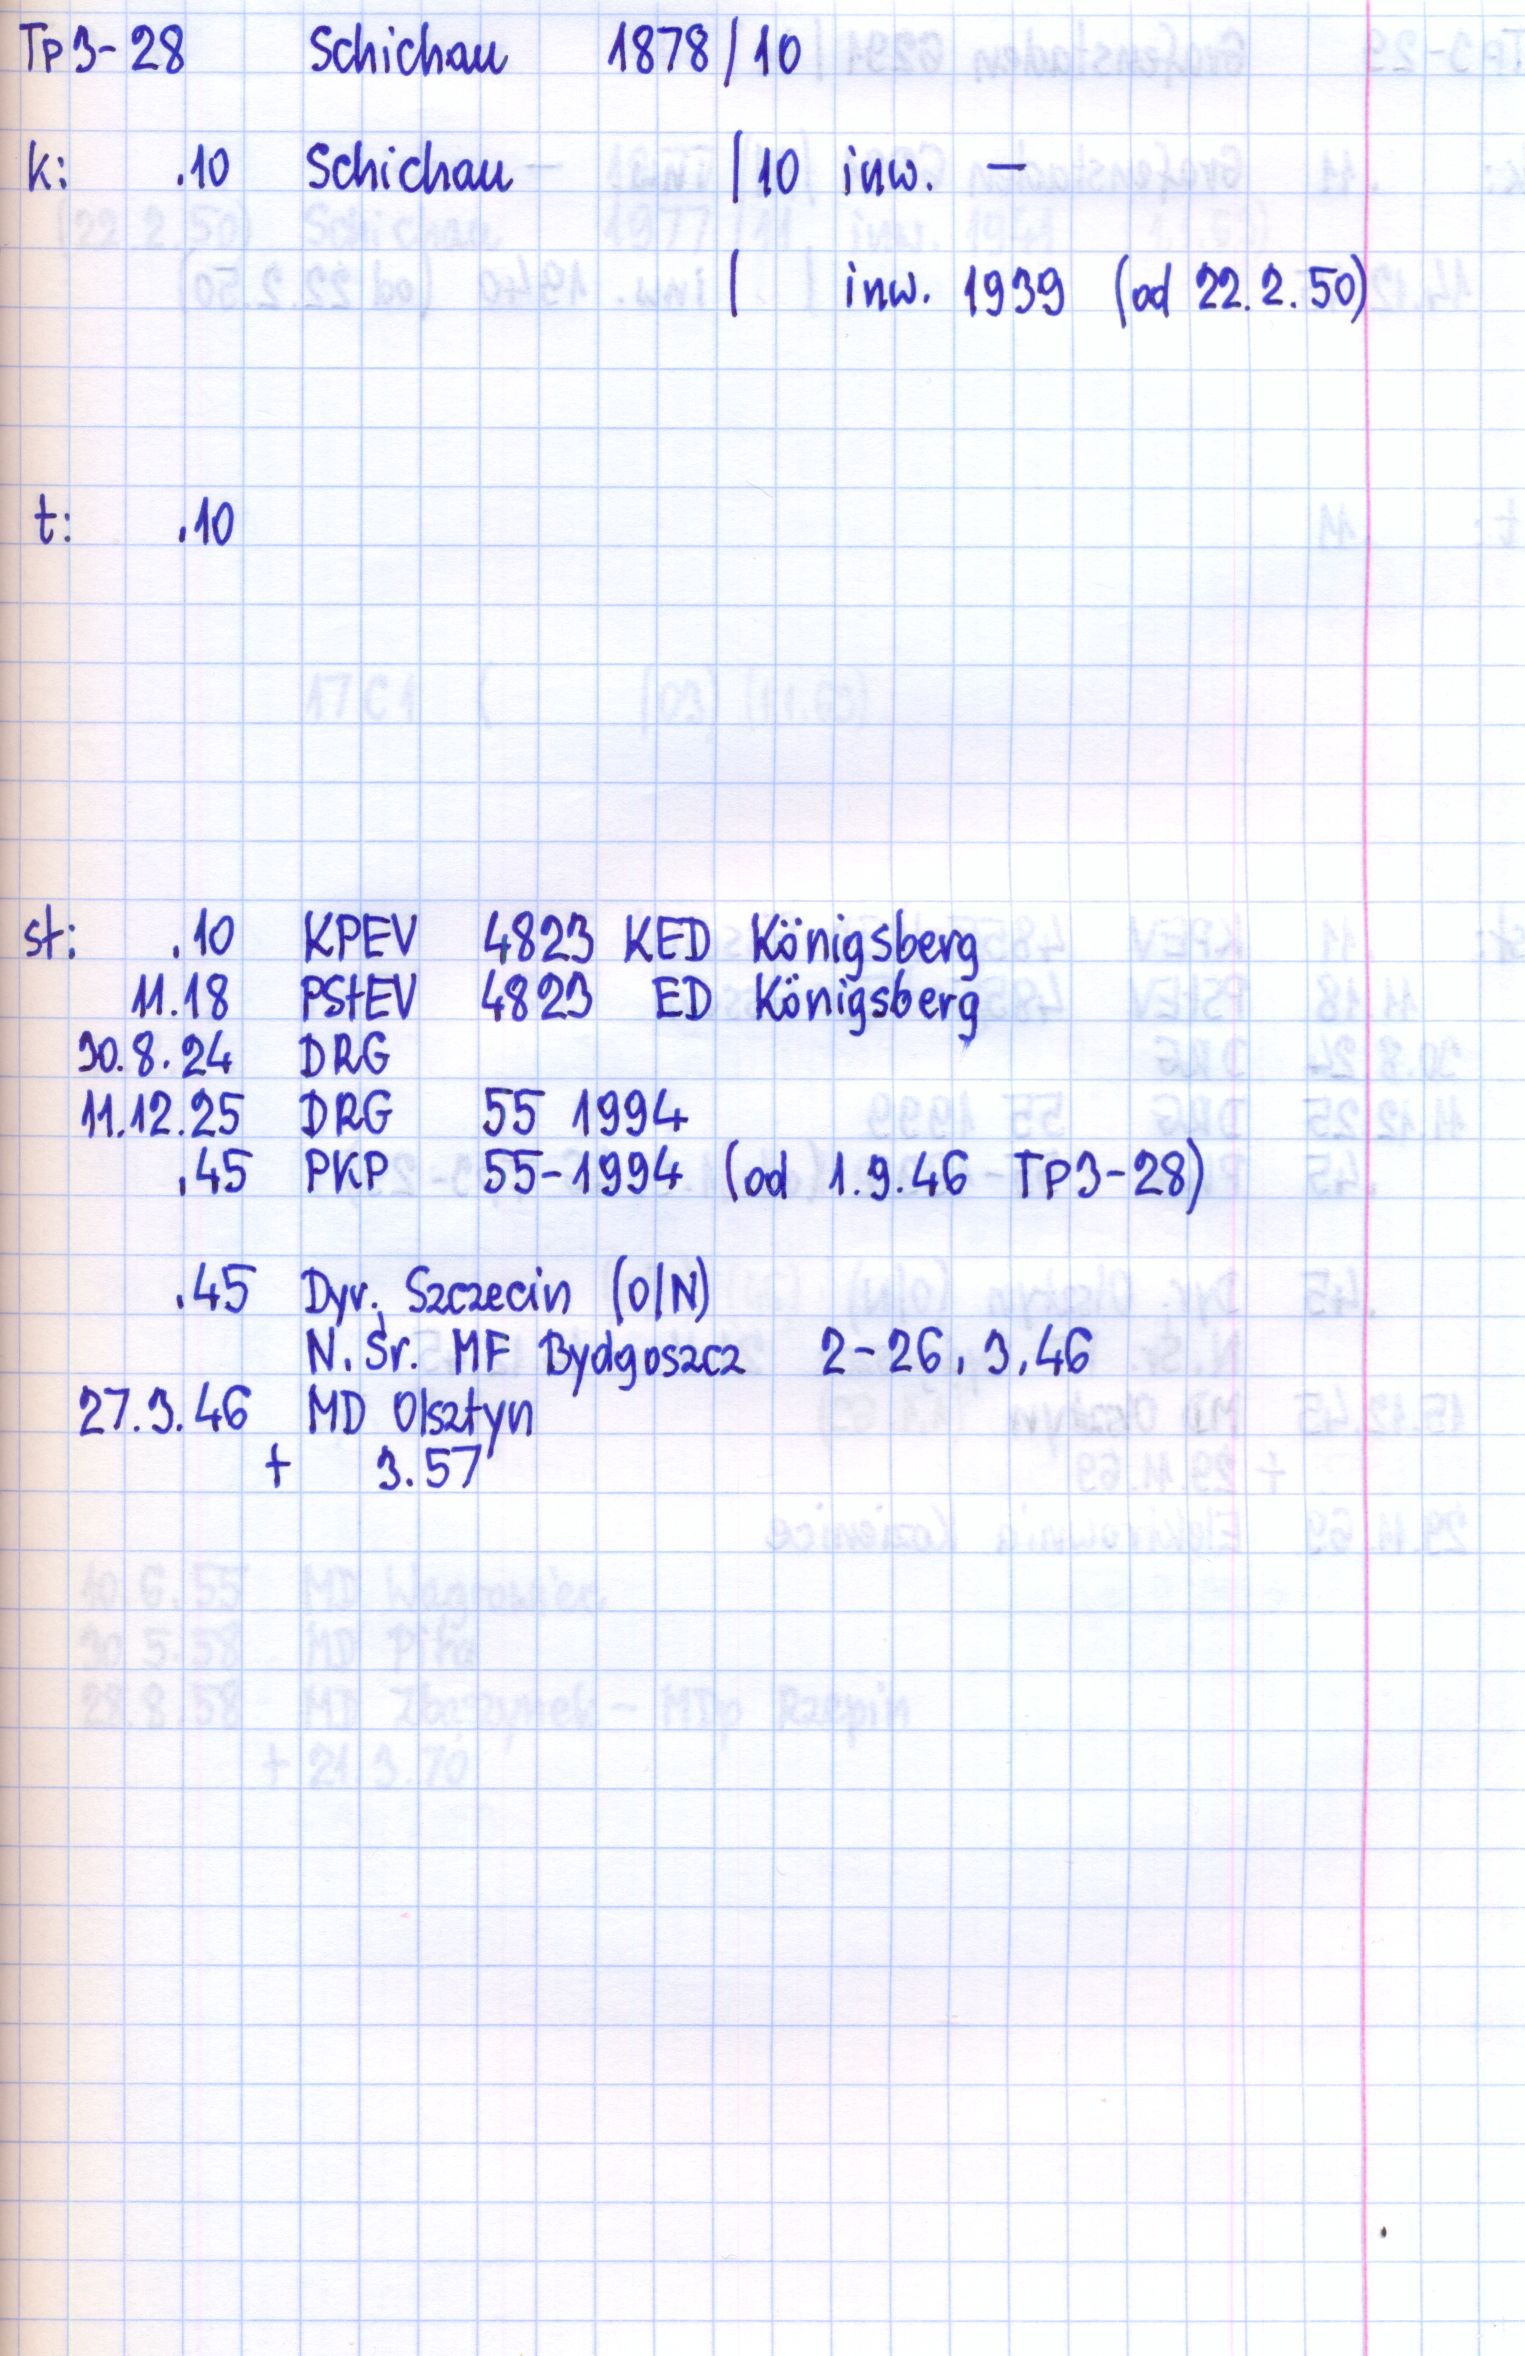 Tp3-28 Schichau 1878/10
k: .10 Schichau /10 inw. —
/ inw. 1939 (od 22.2.50)
t: .10
st: .10 KPEV 4823 KED Königsberg
11.18 PStEV 4823 ED Königsberg
30.8.24 DRG
11.12.25 DRG 55 1994
.45 PKP 55-1994 (od 1.9.46 Tp3-28)
.45 Dyr. Szczecin (O/N)
N. Śr. MF Bydgoszcz 2-26.3.46
27.3.46 MD Olsztyn
+ 3.57